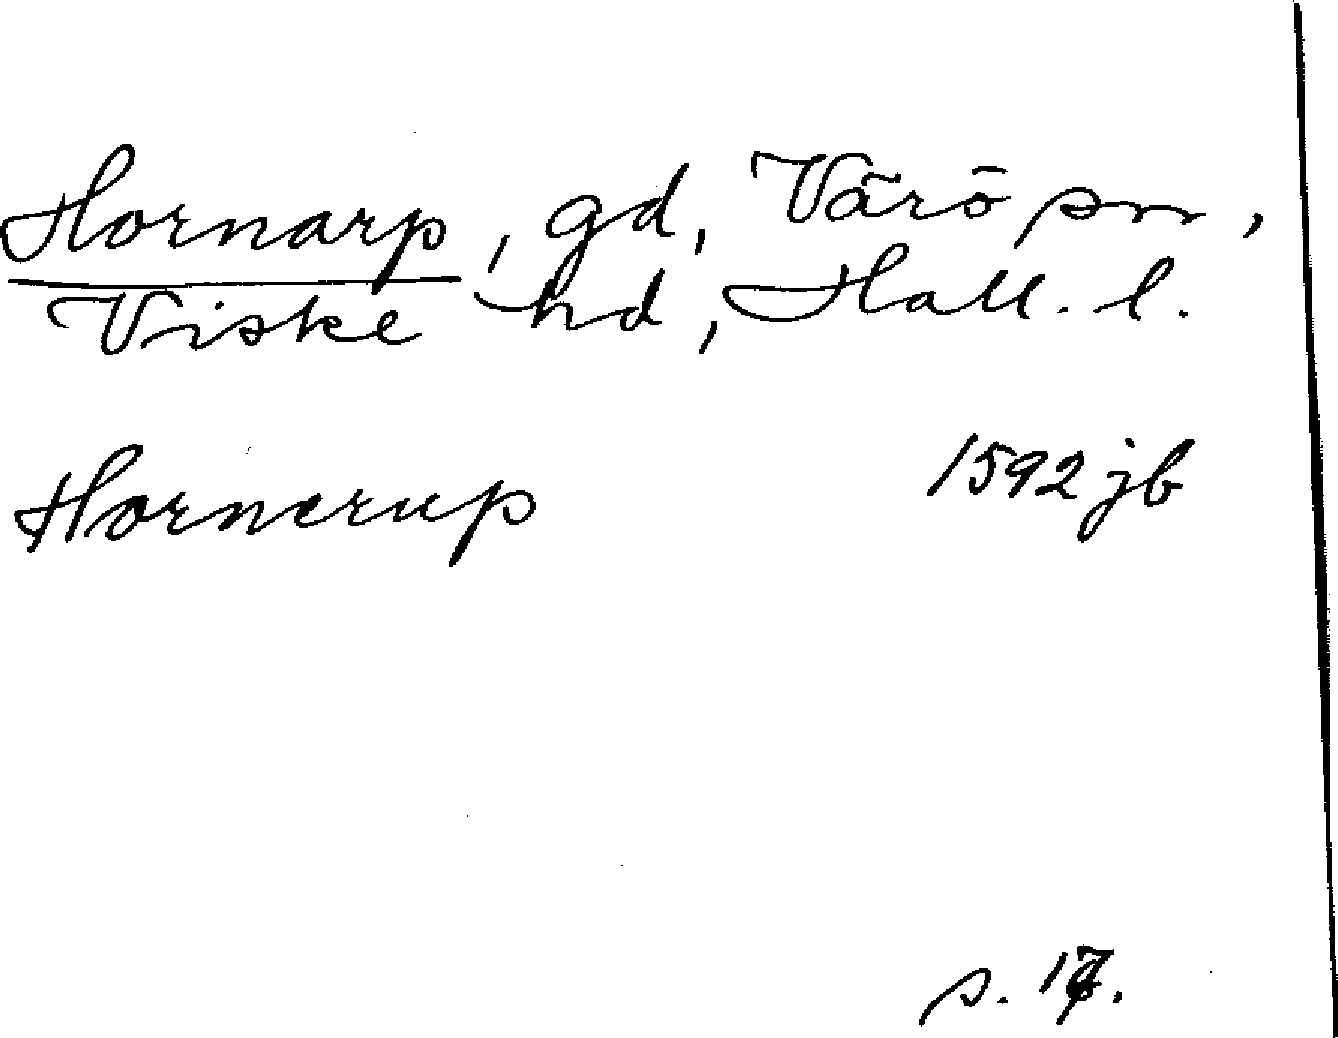 Hornarp, gd, Värö sn,
Viske hd, Hall. l.
Hornerup 1592 jb
s. 17.